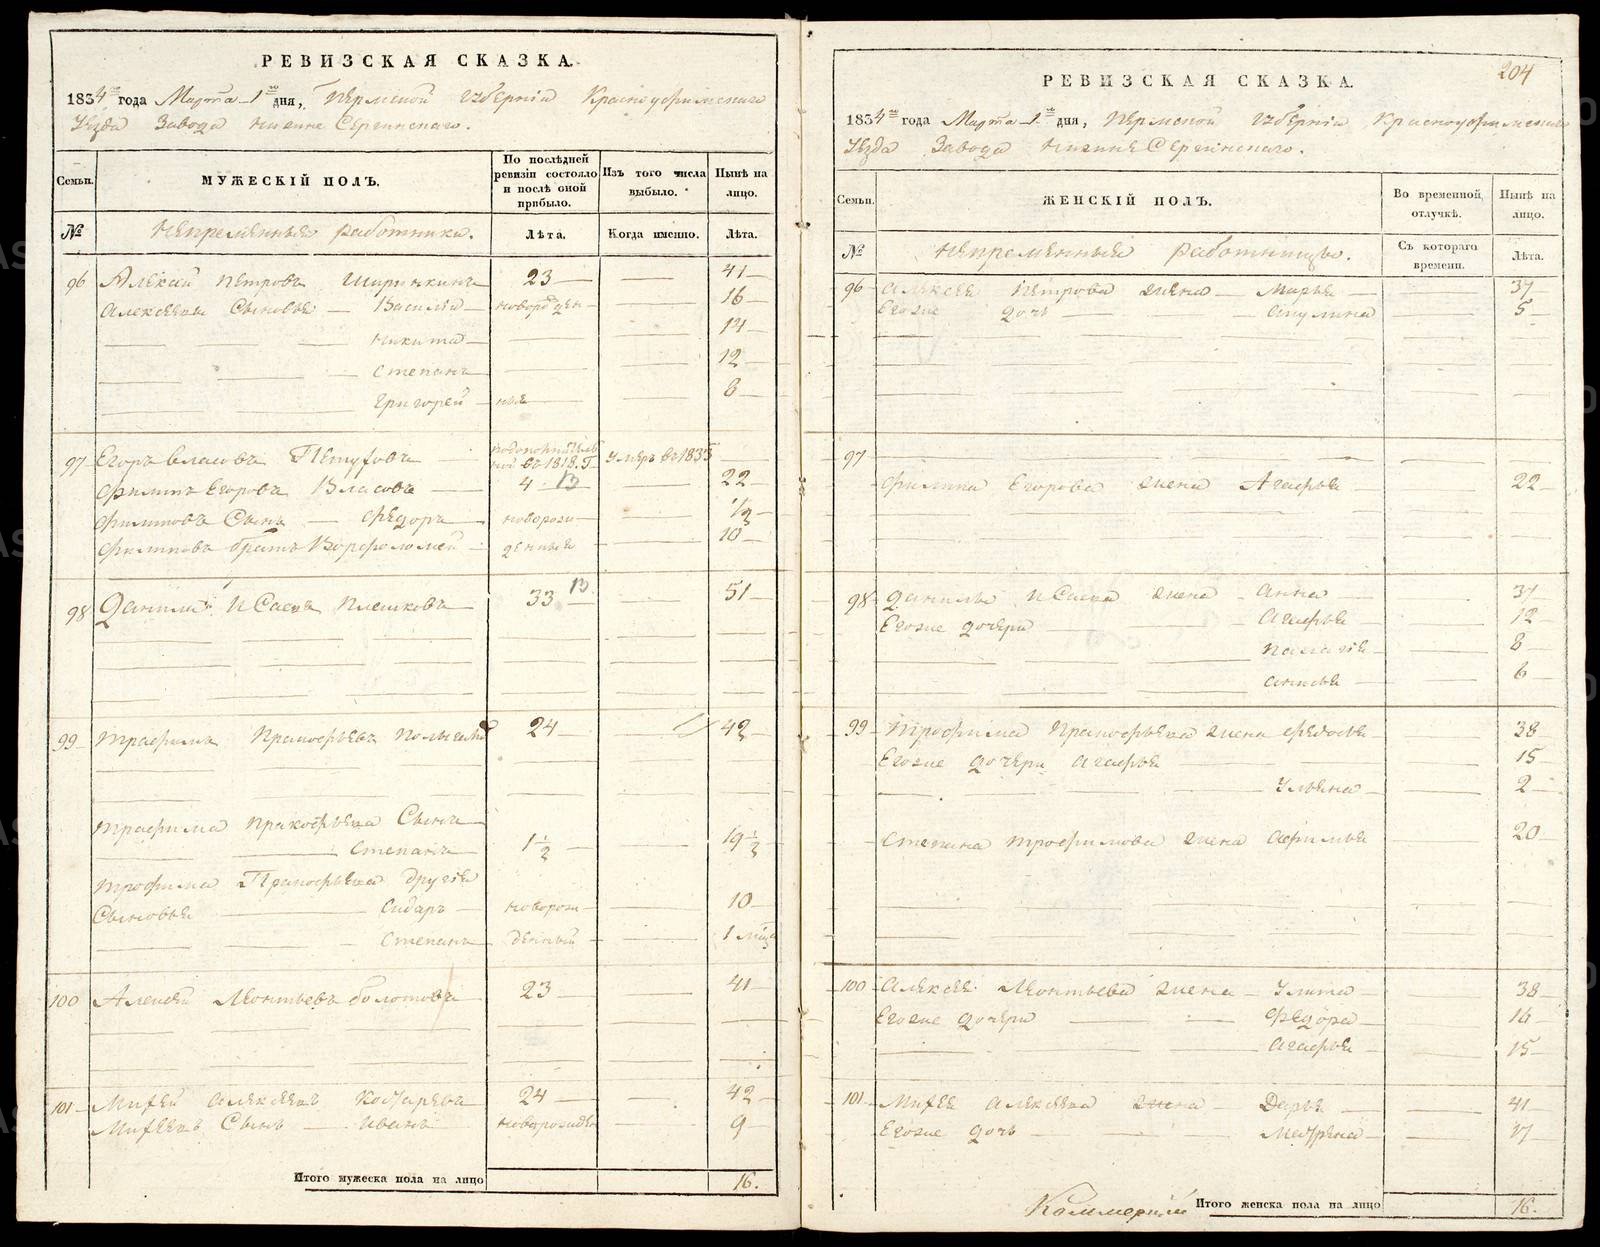 РЕВИЗСКАЯ СКАЗКА.
1834го года Марта 1го дня, Пермской Губернiи Красноуфимскаго
Уезда Завода Нижне Сергинскаго.
Семьи.
МУЖЕСКIЙ ПОЛЪ.
По послѣдней ревизiи состояло и послѣ оной прибыло.
Изъ того числа выбыло.
Нынѣ на лицо.
№
Непременныя работники.
Лѣта.
Когда именно.
Лѣта.
96 Алексей Петровъ Ширинкинъ 23 41
Алексеевы Сыновья Василей новорожден 16
Никита 14
Степанъ 12
Григорей ныя 8
97 Егоръ Власовъ Петуховъ въ 1818. Г Умеръ въ 1833
Филипъ Егоровъ Власовъ 4 13 22
Филиповъ Сынъ Федоръ новорож 1/2
Филиповъ братъ Ворфоломей денныя 10
98 Данила Исаевъ Плешковъ 33 13 51
99 Трафимъ Пракофьевъ 24 42
Трафима Пракофьева Сынъ
Степанъ 1 1/2 19 1/2
Трофима Пракофьева другiя
Сыновья Сидаръ новорож 10
Степанъ денный 1 мѣся
100 Алексей Леонтьевъ болотовъ 23 41
101 Михей Алексеевъ Косарева 24 42
Михеевъ Сынъ Иванъ новорожде 9
Итого мужеска пола на лицо 16.
204
РЕВИЗСКАЯ СКАЗКА.
1834го года Марта 1го дня, Пермской Губернiи Красноуфимскаго
Уезда Завода Нижне Сергинскаго.
Семьи.
ЖЕНСКIЙ ПОЛЪ.
Во временной отлучкѣ.
Нынѣ на лицо.
№
Непременныя работницы.
Съ котораго времени.
Лѣта.
96 Алексея Петрова жена Марья 37
Егоже дочь Акулина 5
97
Филипа Егорова жена Агафья 22
98 Данилы Исаева жена Анна 37
Егоже дочери Агафья 12
Палагiя 8
Анисья 6
99 Трофима Пракофьева жена Федосья 38
Егоже дочери Агафья 15
Ульяна 2
Степана Трофимова жена Афимья 20
100 Алексея Леонтьева жена Улита 38
Егоже дочери Федора 16
Агафья 15
101 Михея Алексеева жена Дарья 41
Егоже дочь Матрена 17
Итого женска пола на лицо 16.